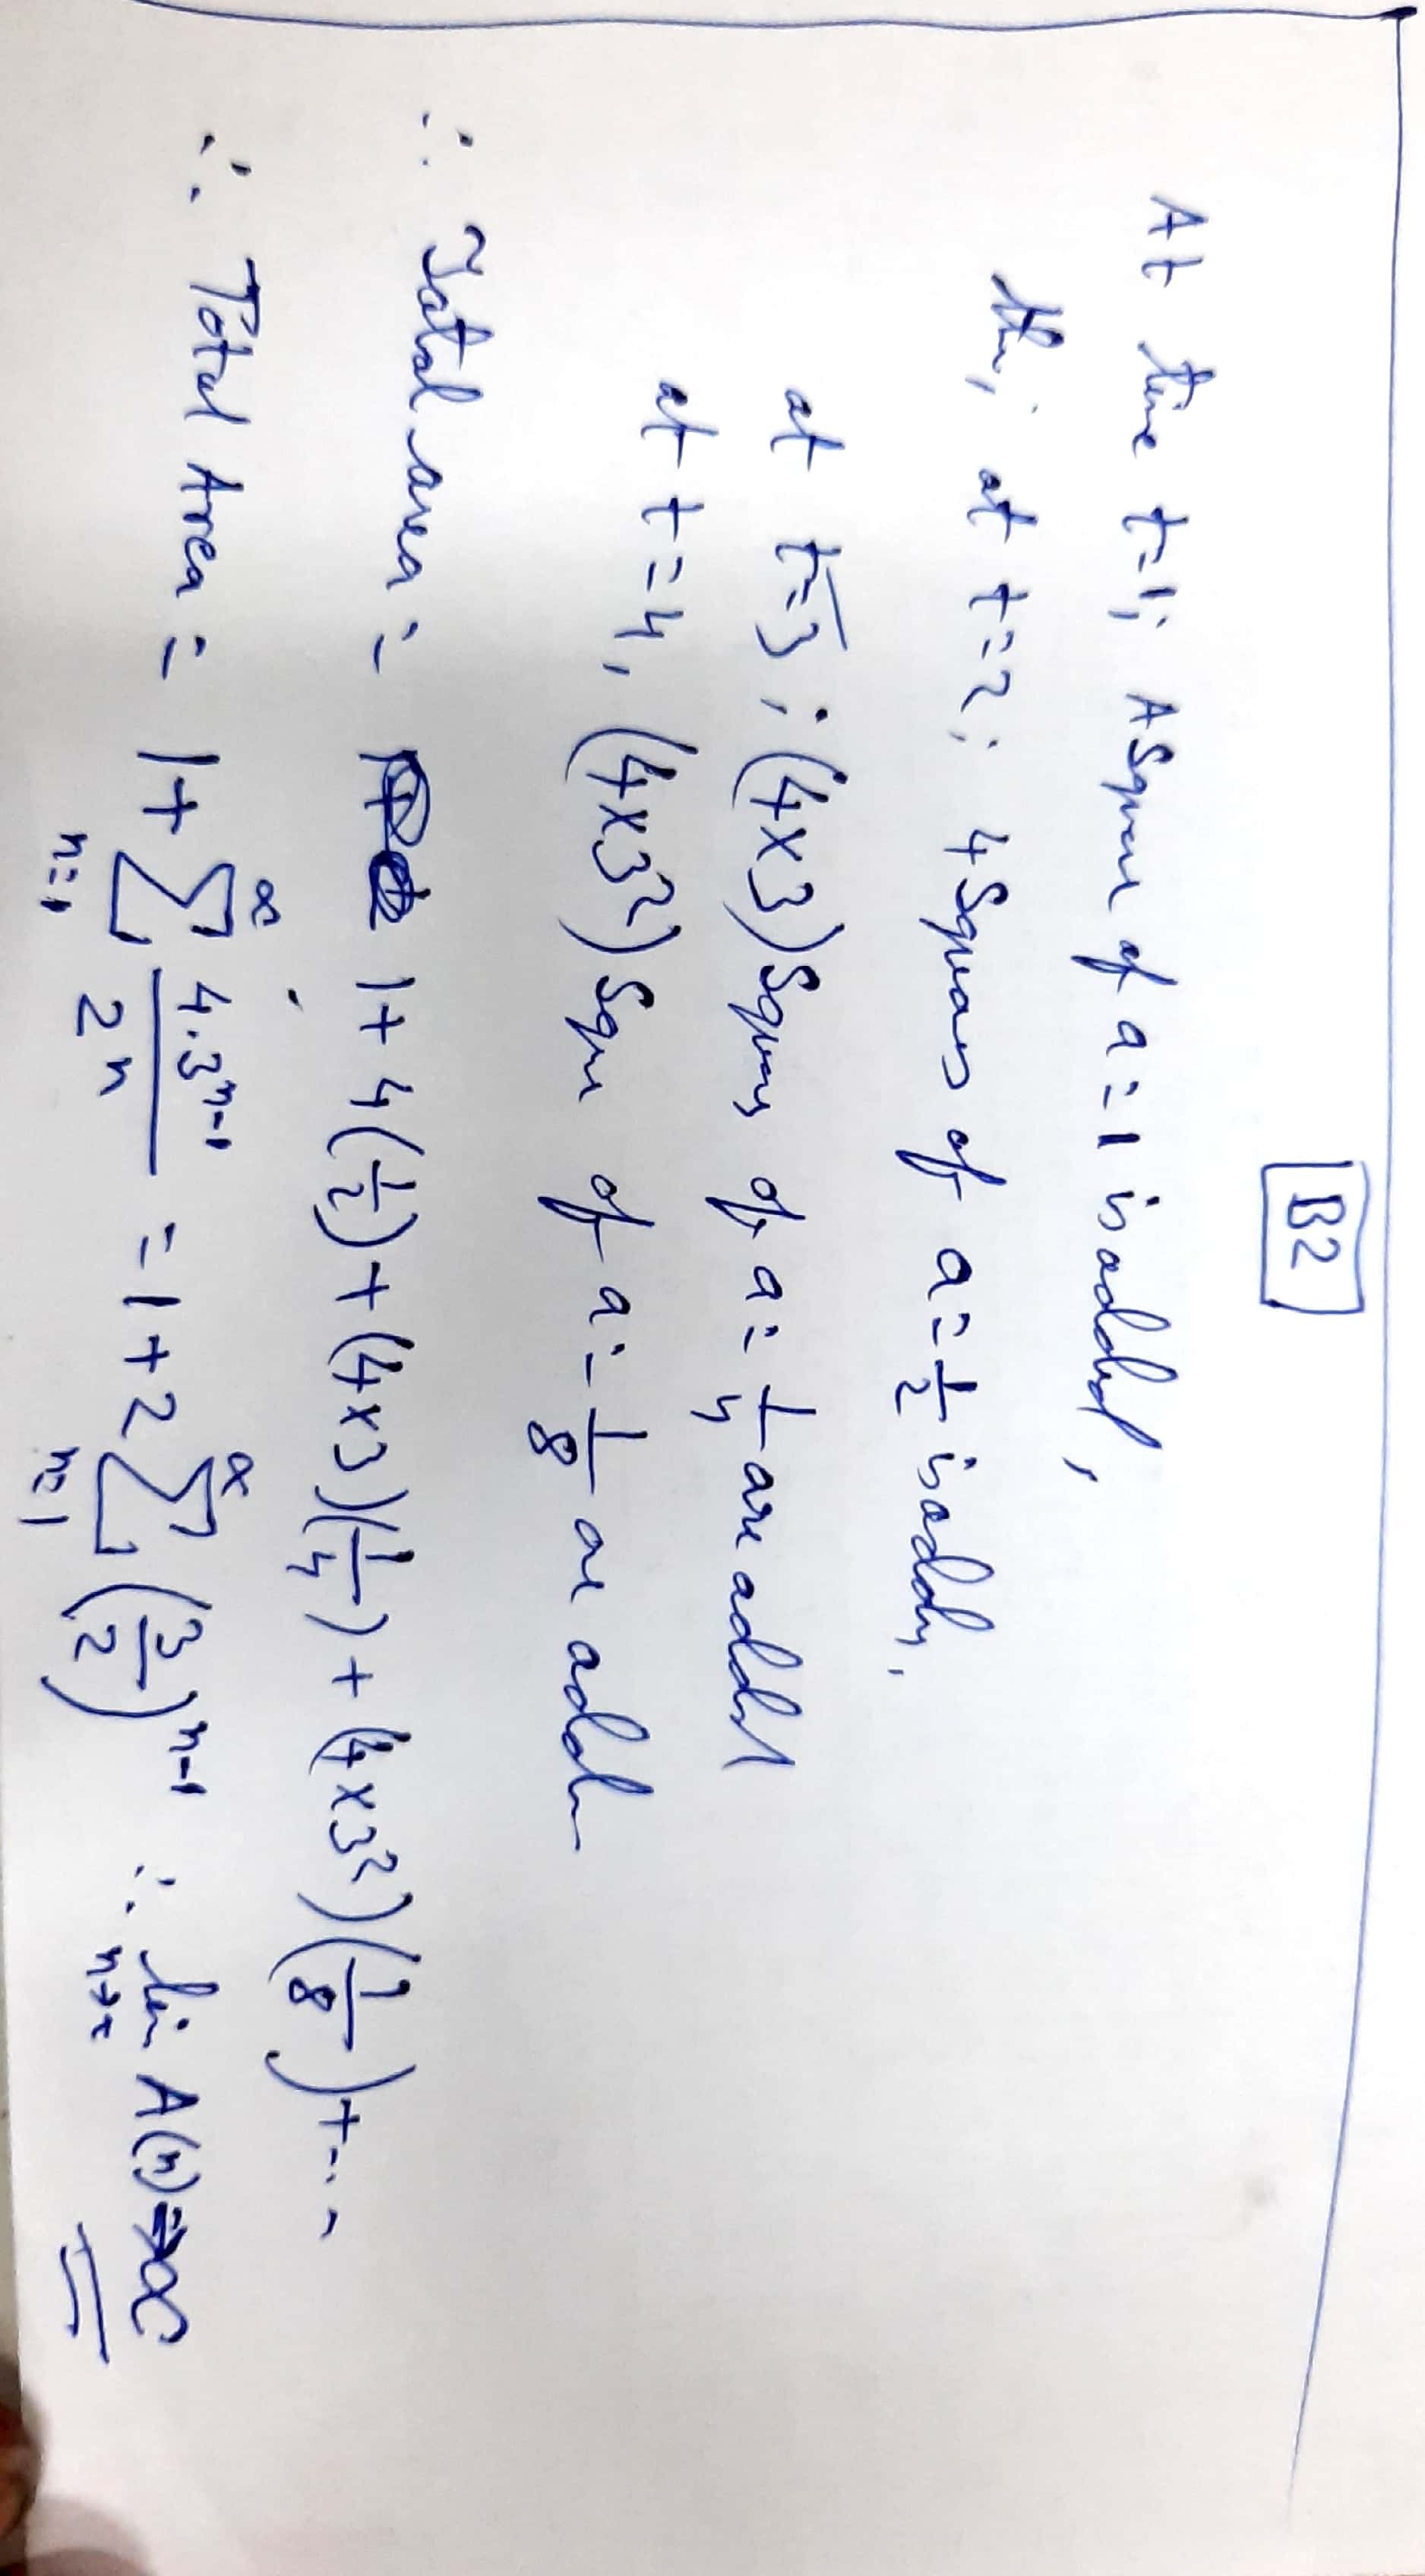 B2
At time t=1; A Square of a=1 is added,
then, at t=2; 4 Squares of a=1/2 is added,
at t=3; (4×3) Squares of a=1/4 are added
at t=4, (4×3²) Squre of a=1/8 are added
∴ Total area = 1+4(1/2)+(4×3)(1/4)+(4×3²)(1/8)+...
∴ Total Area = 1+ ∑_{n=1}^{∞} 4·3^{n-1}/2^n = 1+2 ∑_{n=1}^{∞} (3/2)^{n-1} ∴ lim_{n→∞} A(n)→∞